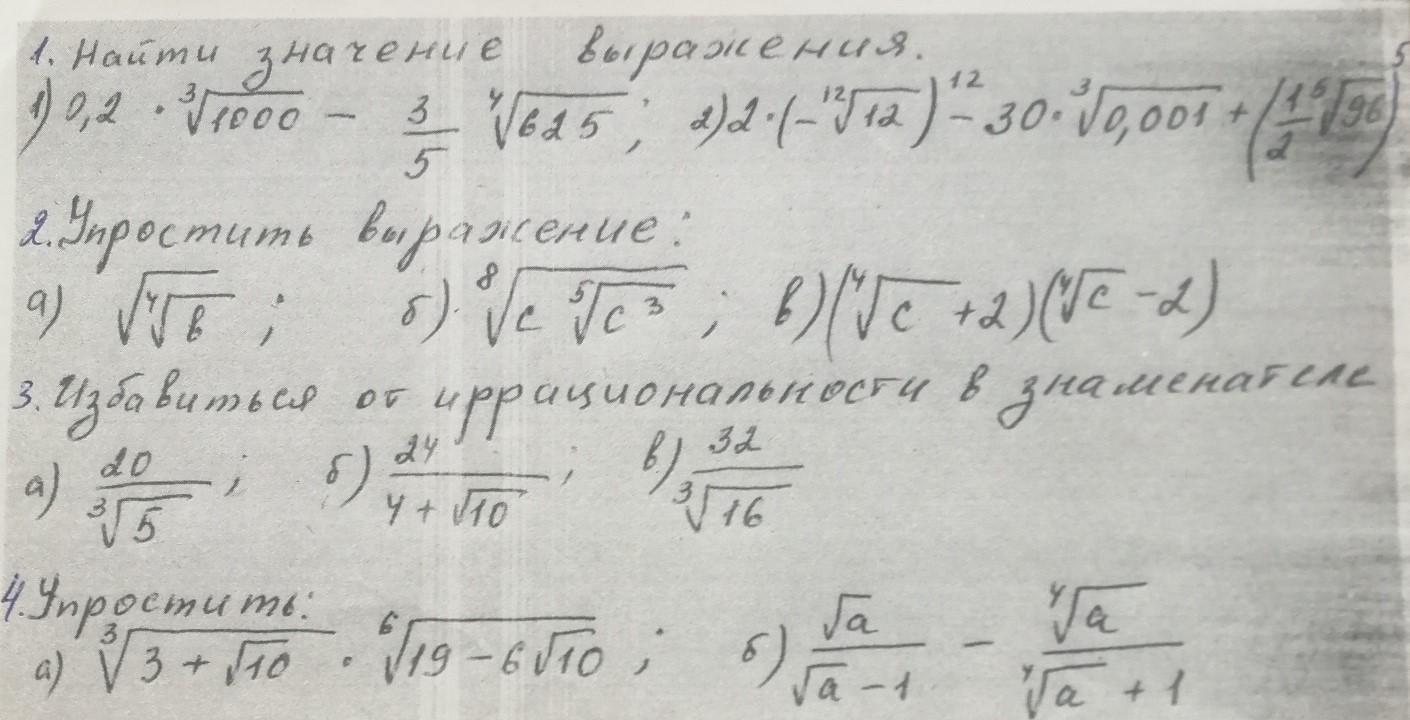 1. Найти значение выражения.
1) 0,2 · ∛1000 − 3/5 ∜625; 2) 2·(−¹²√12)¹² − 30·∛0,001 + (1/2 ⁵√96)⁵
2. Упростить выражение:
а) √∜b; б) ⁸√(c ⁵√c³); в) (∜c + 2)(∜c − 2)
3. Избавиться от иррациональности в знаменателе
а) 20/∛5; б) 24/(4 + √10); в) 32/∛16
4. Упростить:
а) ∛(3 + √10) · ⁶√(19 − 6√10); б) √a/(√a − 1) − ∜a/(∜a + 1)